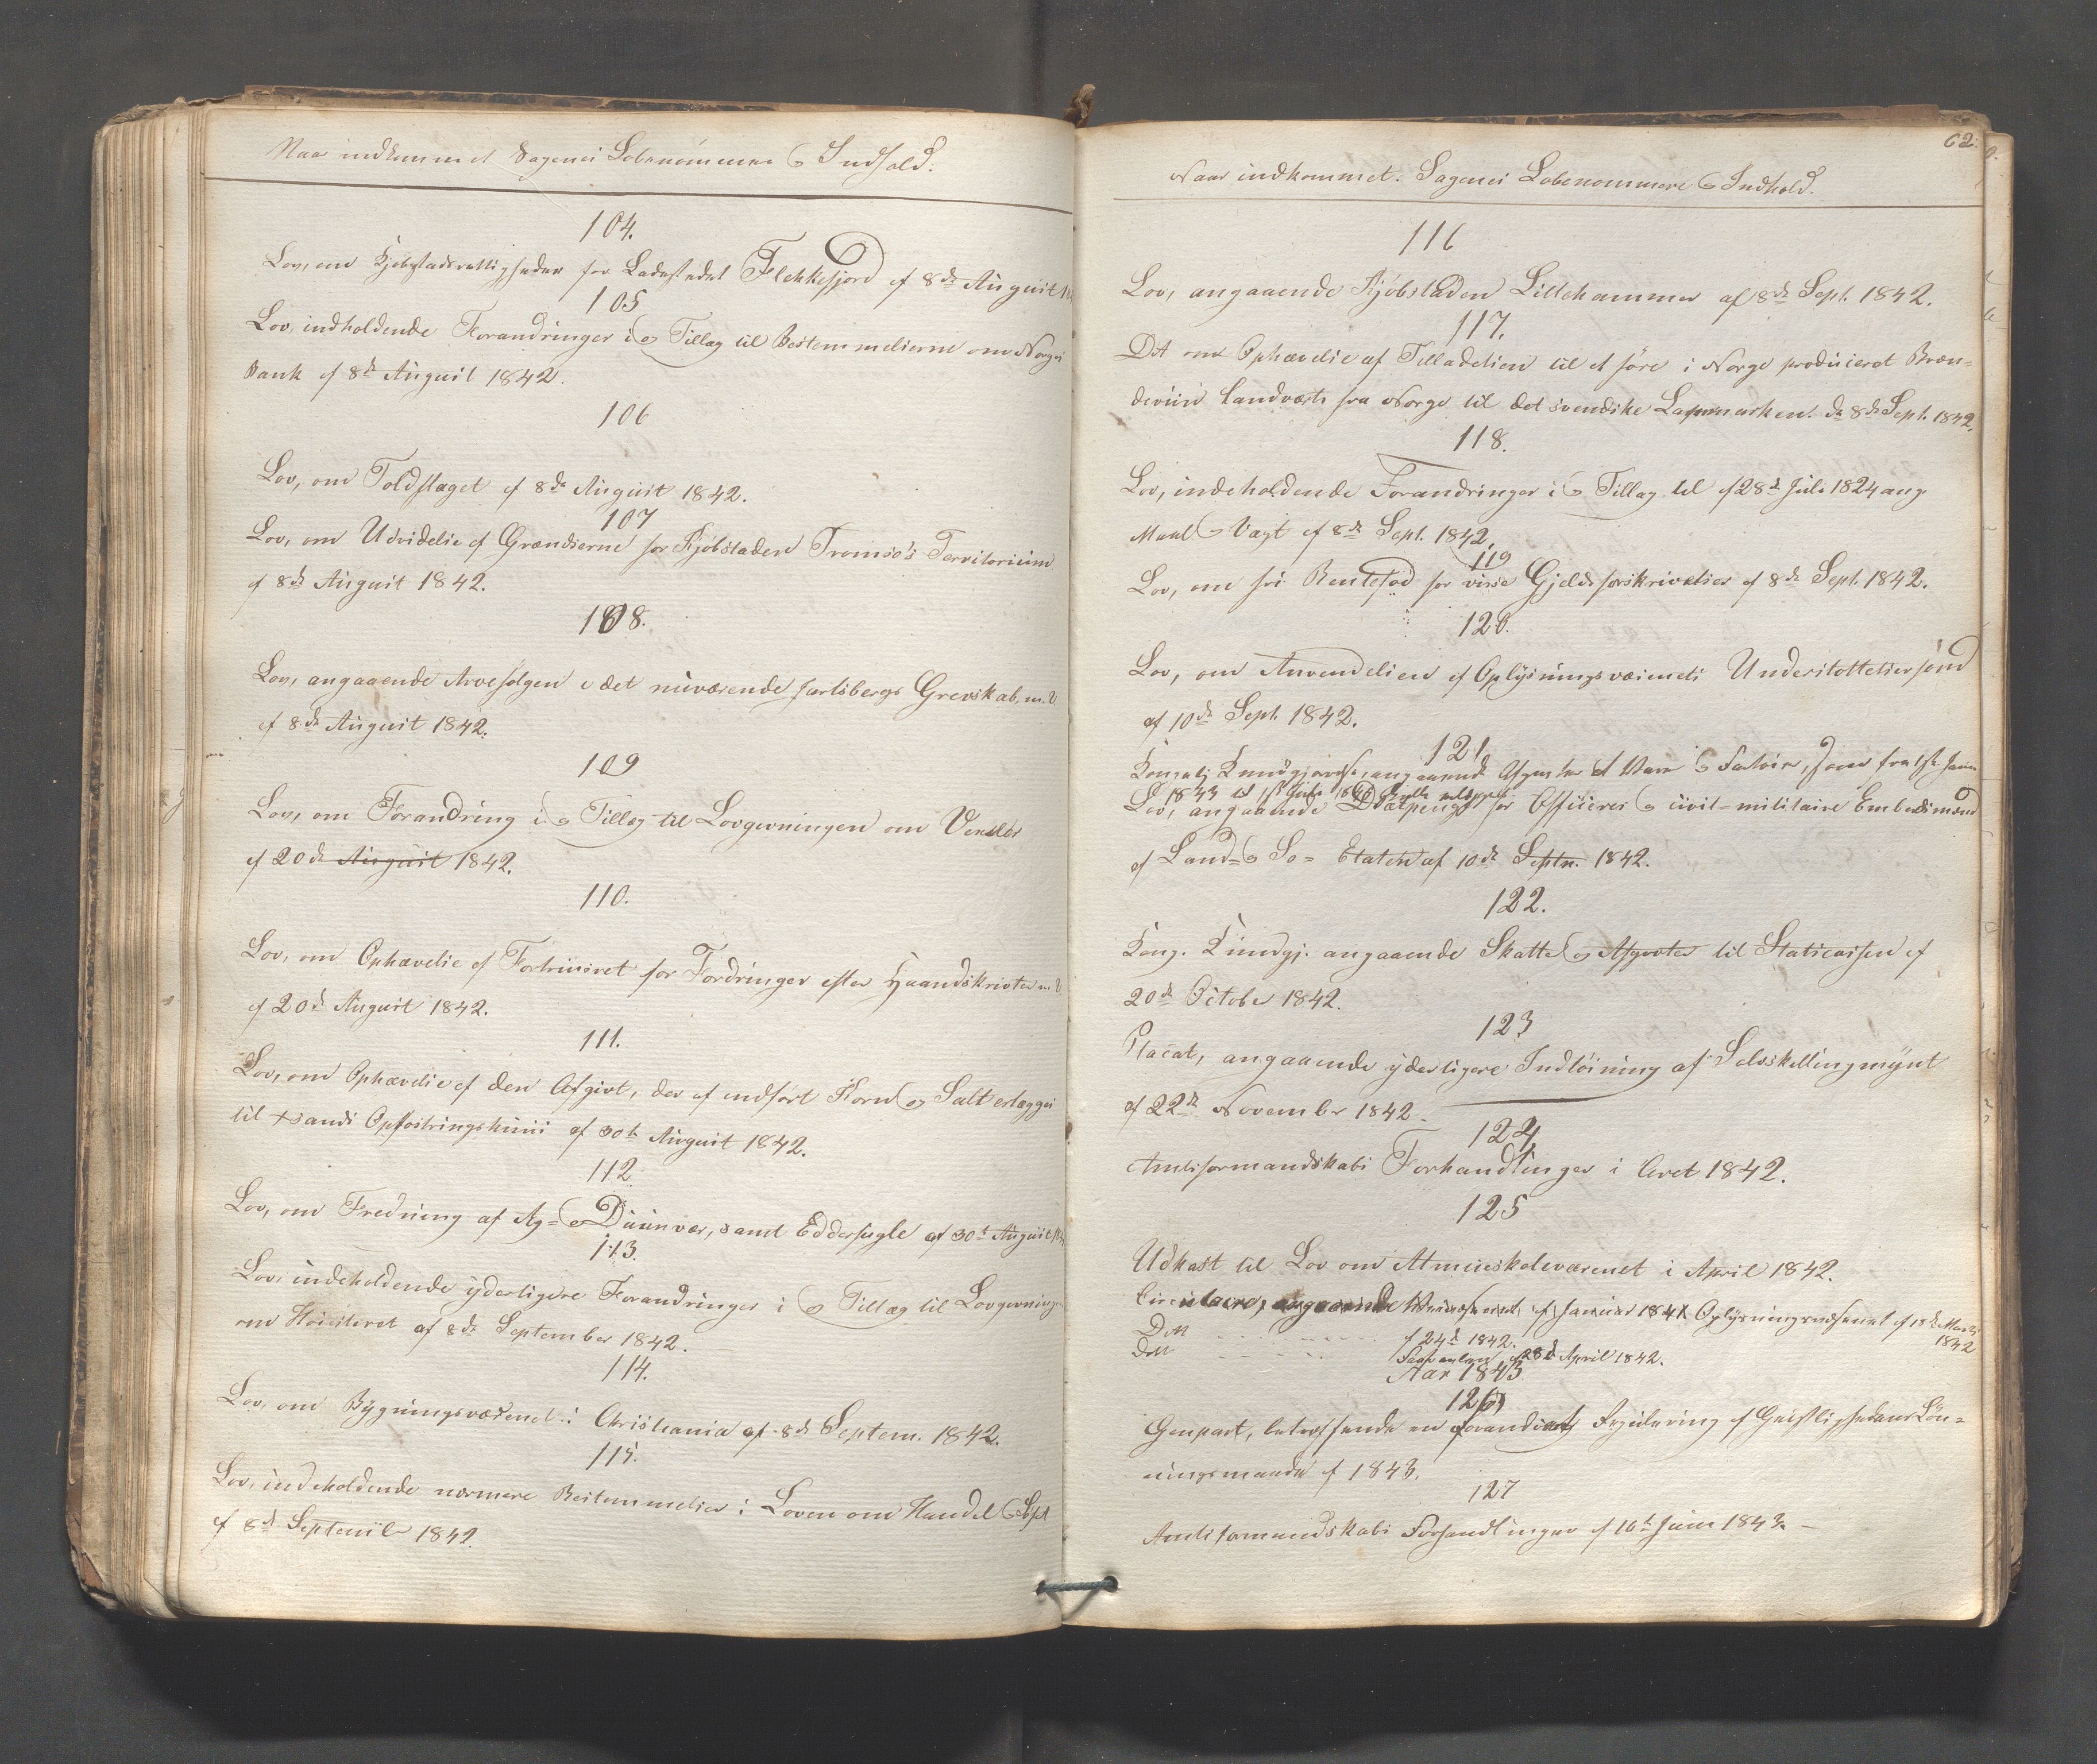 Naar indkommet Sagenes Løbenommere & Indhold.
104.
Lov, om Kjøbstadrettigheder for Ladestedet Flekkefjord af 8de August
105
Lov, indholdende Forandringer i & Tillæg til Bestemmelserne om Norges
Bank af 8de August 1842.
106
Lov, om Toldslaget af 8de August 1842.
107
Lov, om Udvidelse af Grændserne for Kjøbstaden Tromsø's Territorium
af 8de August 1842.
108.
Lov, angaaende Arvefølgen i det nuværende Jarlsbergs Grevskab, m.V.
af 8de August 1842.
109
Lov, om Forandring i & Tillæg til Lovgivningen om Vexler
af 20de August 1842.
110.
Lov, om Ophævelse af Fortrinsret for Fordringer efter Haandskrivter m.V.
af 20de August 1842.
111.
Lov, om Ophævelse af den Afgivt, der af indført Korn & Salt erlægges
til Xsands Opfostringshuus af 30te August 1842.
112.
Lov, om Fredning af Æg- & Duunvær, samt Edderfugle af 30te August
113.
Lov, indeholdende yderligere Forandringer i & Tillæg til Lovgivningen
om Høiesteret af 8de September 1842.
114.
Lov, om Bygningsvæsenet i Christiania af 8de Septem. 1842.
115.
Lov, indeholdende nærmere Bestemmelser i Loven om Handel &
af 8de September 1842.
62.
Naar indkommet. Sagenes Løbenommere & Indhold.
116
Lov, angaaende Kjøbstaden Lillehammer af 8de Sept. 1842.
117.
Dt om Ophævelse af Tilladelsen til at føre i Norge produceret Bræn-
deviin landværts fra Norge til det svendske Lapmarken. da 8de Sept. 1842.
118.
Lov, indeholdende Forandringer i & Tillæg til af 28de Juli 1824 ang.
Maal & Vægt af 8de Sept. 1842.
119
Lov, om fri Rentefod for visse Gjeldsforskrivelser af 8de Sept. 1842.
120.
Lov, om Anvendelsen af Oplysningsvæsenets Understøttelsesfond
af 10de Sept. 1842.
121.
Kongelig Kundgjørelse, angaaende Afgivter af Varer & Fartøier, som fra 1ste
1843 til 1ste Juli
Lov, angaaende Diætpenge for Officerer & civil-militaire Embedsmænd
af Land- & Sø- Etaten af 10de Septr. 1842.
122.
Kong. Kundgj. angaaende Skatter & Afgivter til Statscassen af
20de October 1842.
123
Placat, angaaende yderligere Indløsning af Sølvskillingmynt
af 22de November 1842.
124
Amtsformandskabs Forhandlinger i Aaret 1842.
125
Udkast til Lov om Almueskolevæsenet i April 1842.
Circulaere, angaaende af Januar 1841 Oplysningsvæsenet af 18de Marts
1842
Dtt - - - - - af 24de 1842.
Dtt - - - - - af 28de April 1842.
Aar 1843
126
Genpart, betræffende en forandret Regulering af Geistlighedens Løn-
ningsmaade af 1843.
127
Amtsformandskabs Forhandlinger af 16de Juni 1843. –